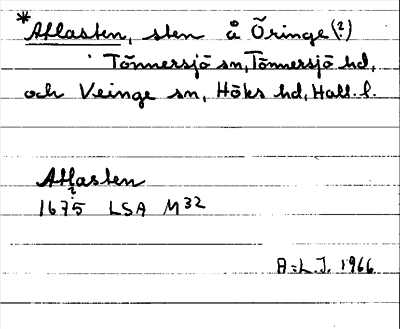 *Atlasten, sten å Öringe (?)
Tönnersjö sn, Tönnersjö hd,
och Veinge sn, Höks hd, Hall. l.
Atlasten
?
1675 LSA M32
A-L J. 1966